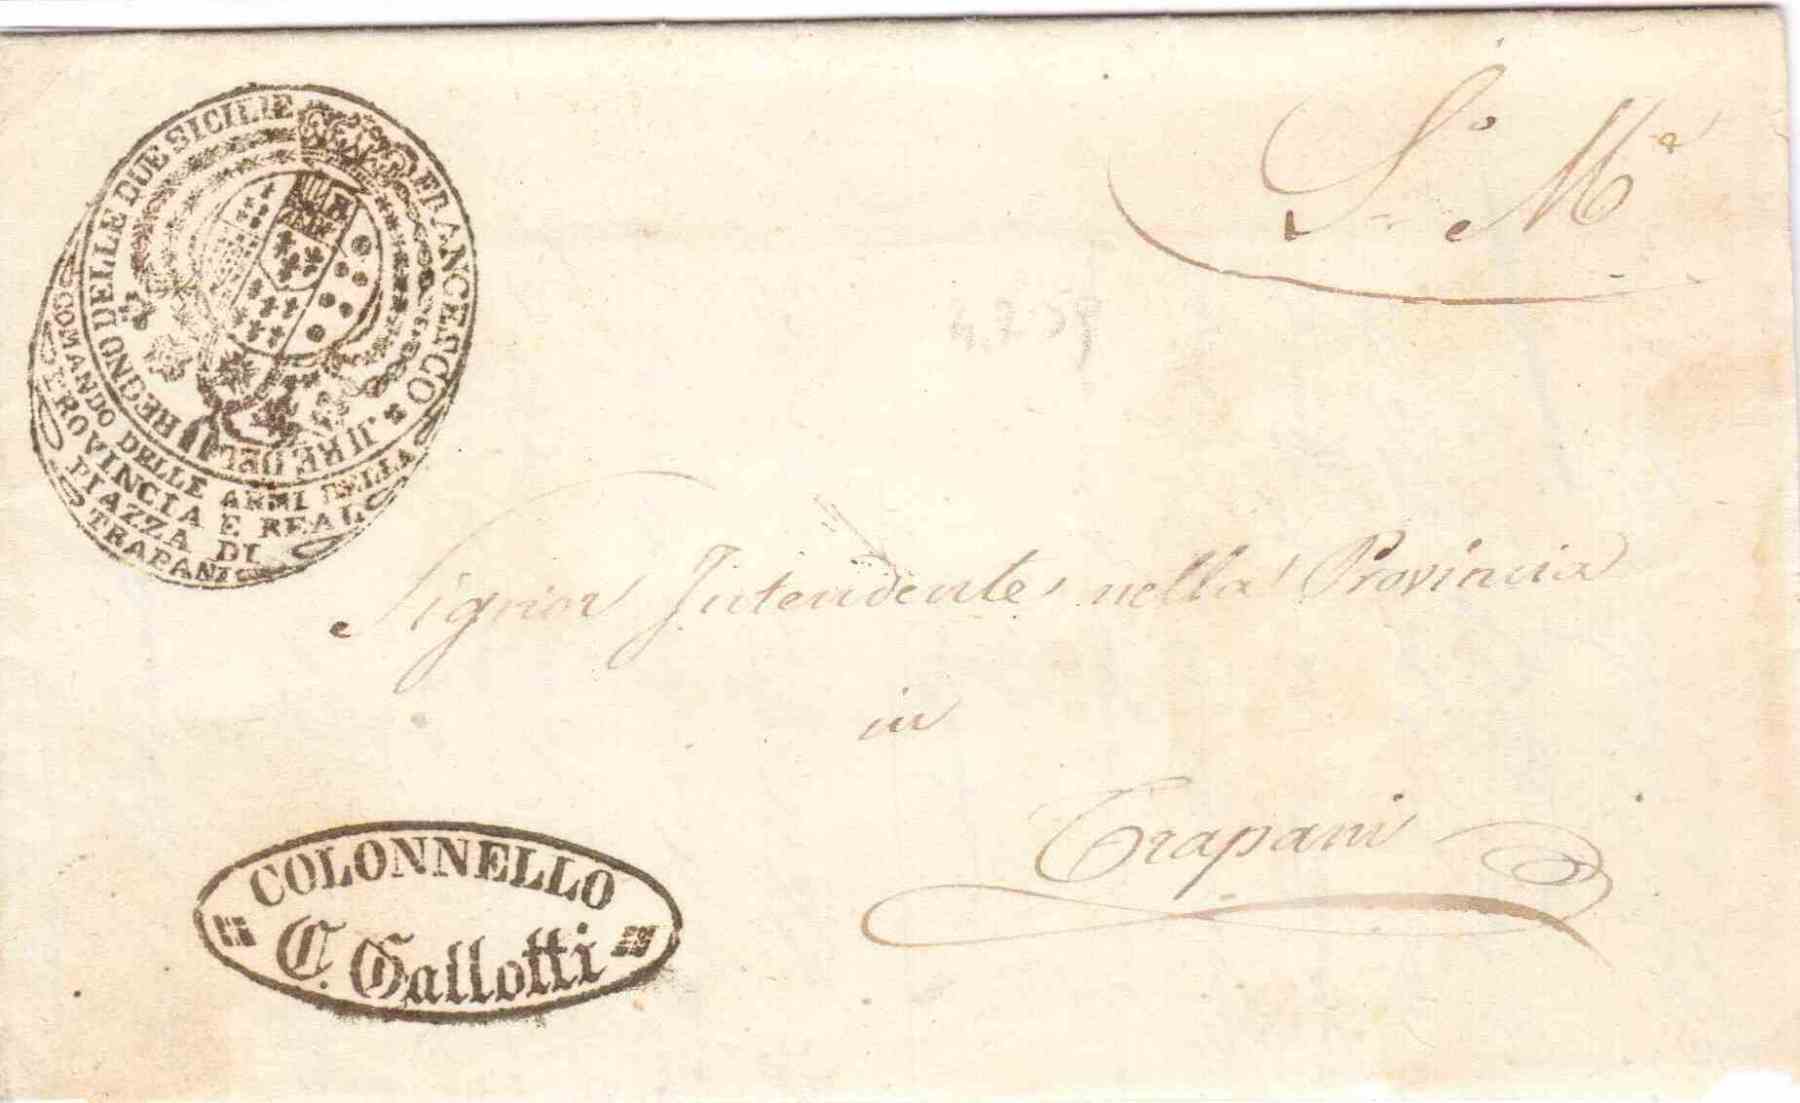 FRANCESCO II RE DEL REGNO DELLE DUE SICILIE
COMANDO DELLE ARMI DELLA
PROVINCIA E REAL
PIAZZA DI
TRAPANI
Signor Intendente nella Provincia
in
Trapani
COLONNELLO
C. Gallotti